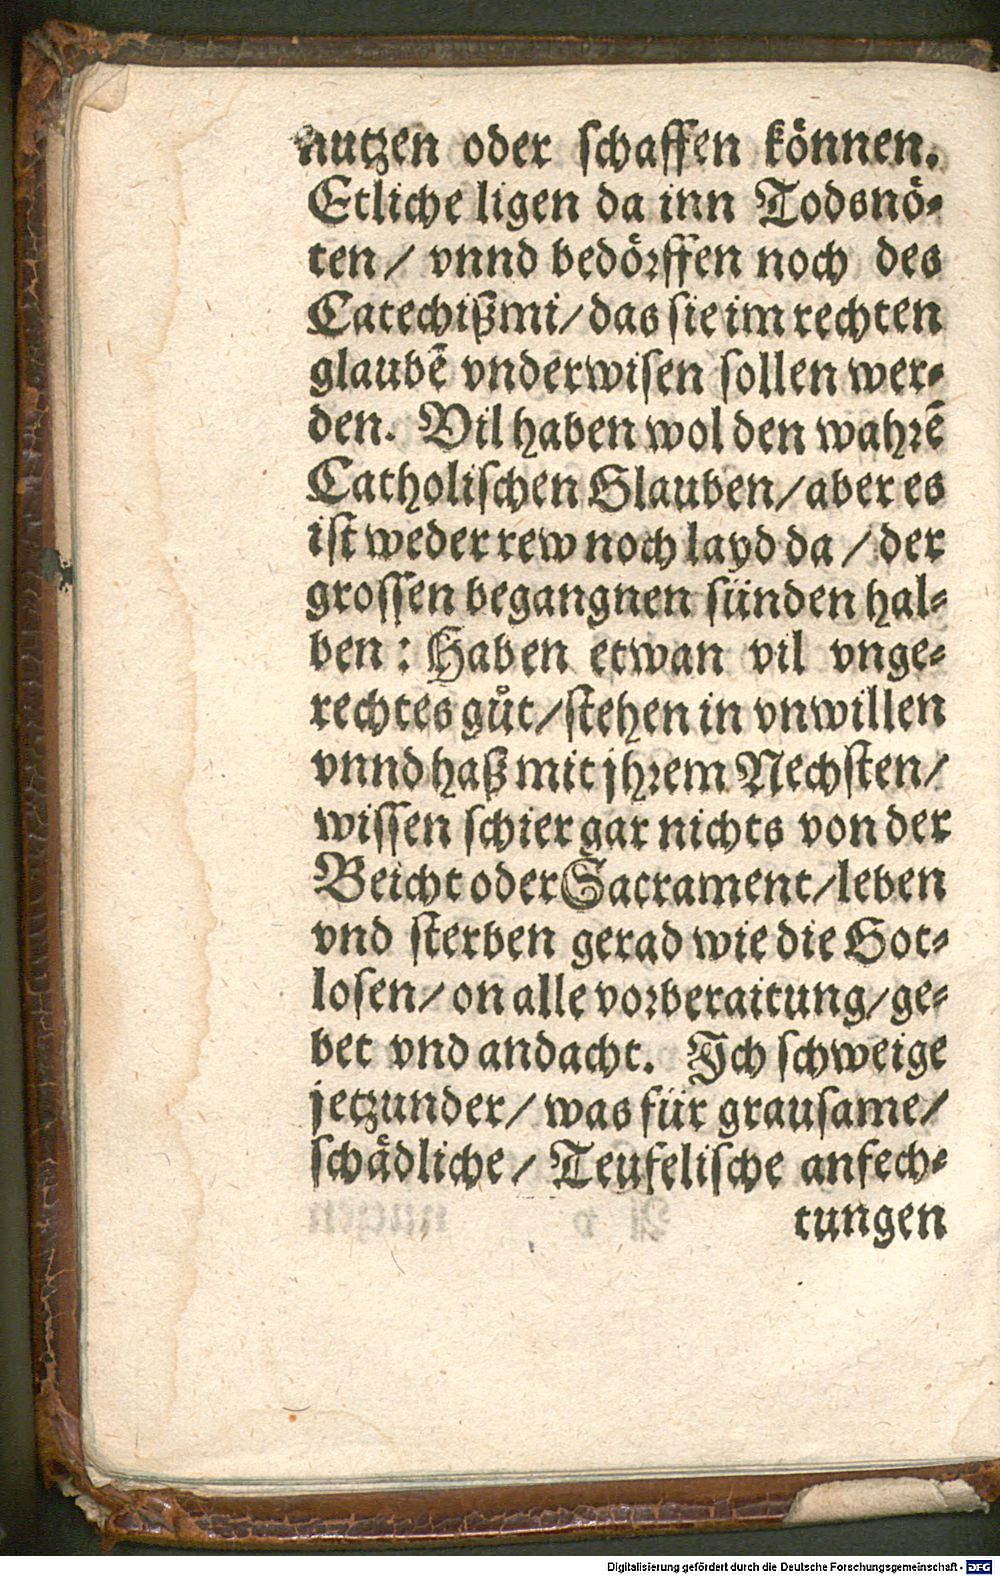 nutzen oder schaffen können.
Etliche ligen da inn Todsnö-
ten / vnnd bedörffen noch des
Catechißmi / das sie im rechten
glaubẽ vnderwisen sollen wer-
den. Vil haben wol den wahrẽ
Catholischen Glauben / aber es
ist weder rew noch layd da / der
grossen begangnen sünden hal-
ben : Haben etwan vil vnge-
rechtes gůt / stehen in vnwillen
vnnd haß mit jhrem Nechsten /
wissen schier gar nichts von der
Beicht oder Sacrament / leben
vnd sterben gerad wie die Got-
losen / on alle vorberaitung / ge-
bet vnd andacht. Ich schweige
jetzunder / was für grausame /
schädliche / Teufelische anfech-
tungen
Digitalisierung gefördert durch die Deutsche Forschungsgemeinschaft - DFG